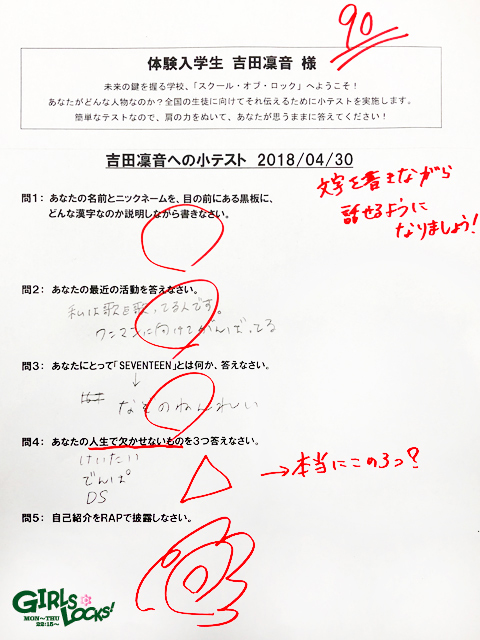 90
体験入学生 吉田凜音 様
未来の鍵を握る学校、「スクール・オブ・ロック」へようこそ！
あなたがどんな人物なのか？全国の生徒に向けてそれ伝えるために小テストを実施します。
簡単なテストなので、肩の力をぬいて、あなたが思うままに答えてください！
吉田凜音への小テスト 2018/04/30
文字を書きながら
話せるように
なりましょう！
問1： あなたの名前とニックネームを、目の前にある黒板に、
どんな漢字なのか説明しながら書きなさい。
問2： あなたの最近の活動を答えなさい。
私は歌を歌ってるんです。
ワンマンに向けてがんばってる
問3： あなたにとって「SEVENTEEN」とは何か、答えなさい。
↓
なぞのねんれい
問4： あなたの人生で欠かせないものを3つ答えなさい。
けいたい
でんぱ
DS
→本当にこの3つ？
問5： 自己紹介をRAPで披露しなさい。
GIRLS LOCKS!
MON~THU
22:15~